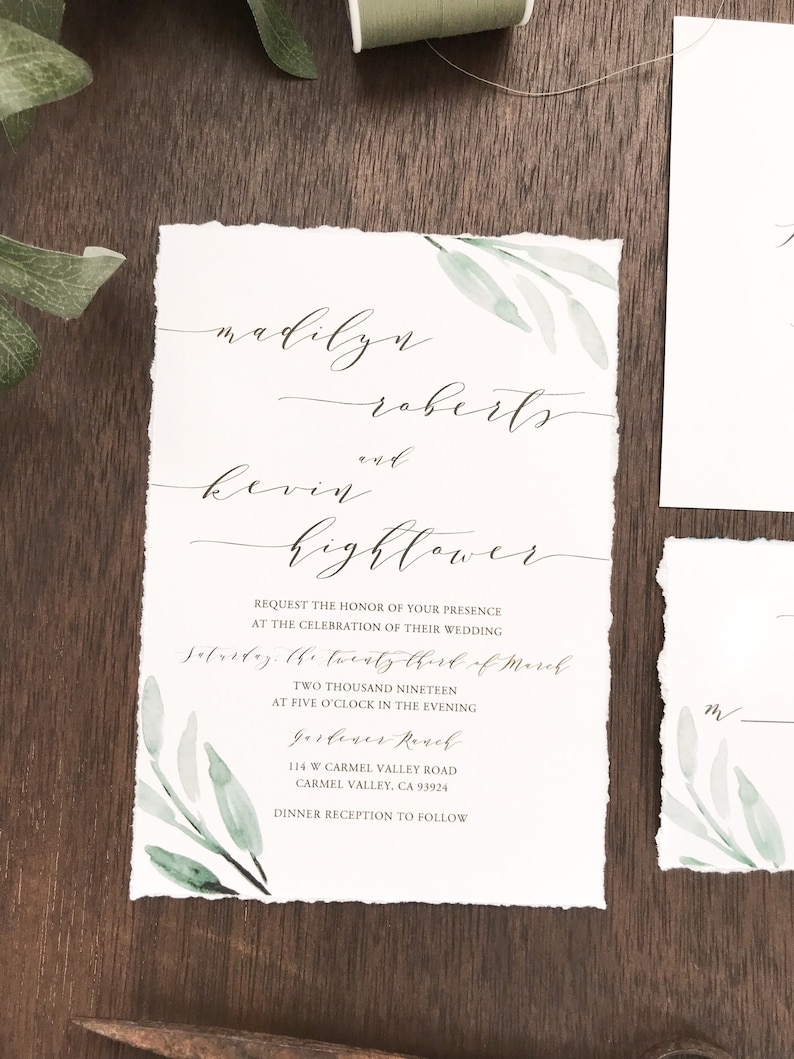 madilyn
roberts
and
kevin
hightower
REQUEST THE HONOR OF YOUR PRESENCE
AT THE CELEBRATION OF THEIR WEDDING
Saturday, the twenty third of March
TWO THOUSAND NINETEEN
AT FIVE O'CLOCK IN THE EVENING
Gardener Ranch
114 W CARMEL VALLEY ROAD
CARMEL VALLEY, CA 93924
DINNER RECEPTION TO FOLLOW
m